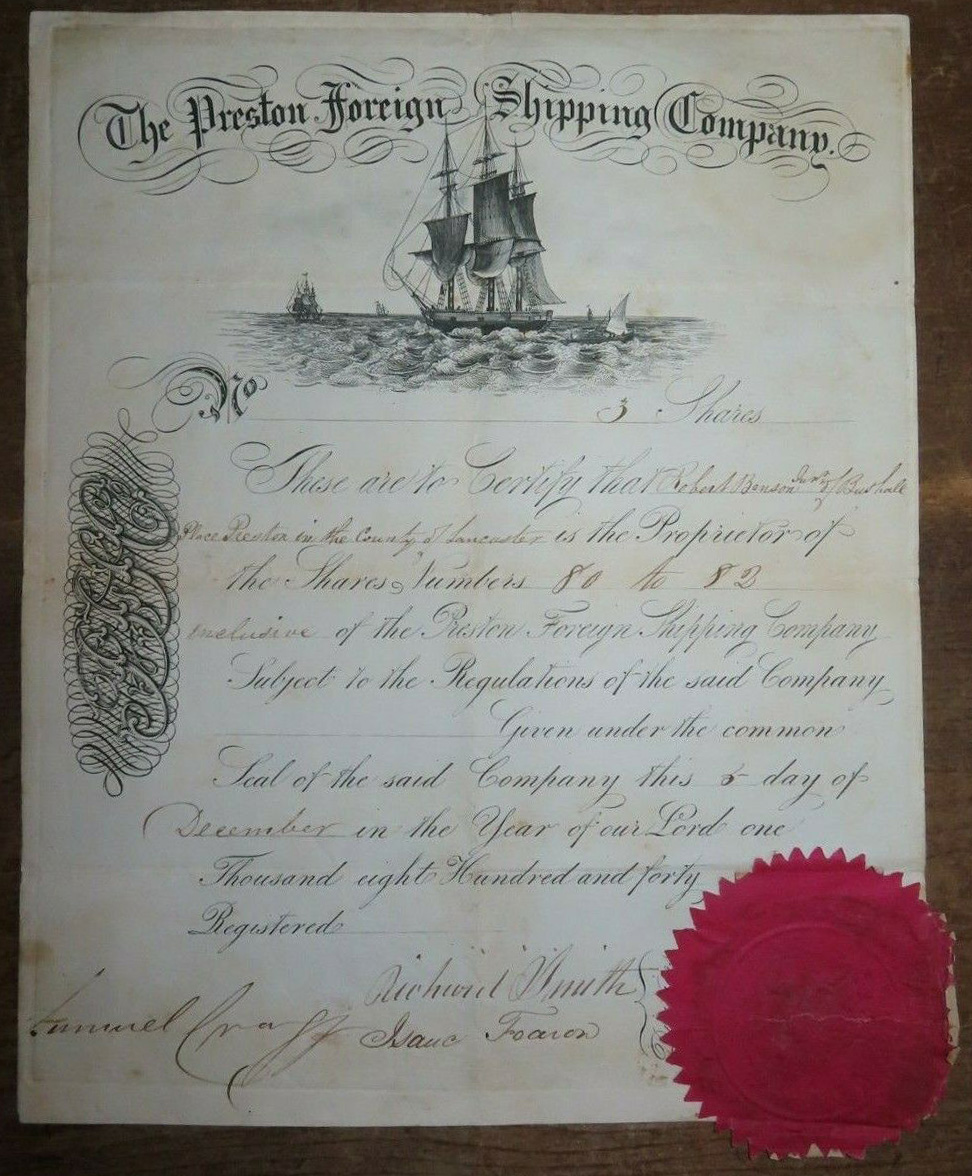 The Preston Foreign Shipping Company.
No. 3 Shares
These are to Certify that Robert Benson Junr of Bushell
Place Preston in the County of Lancaster is the Proprietor of
the Shares, Numbers 80 to 82
inclusive of the Preston Foreign Shipping Company
Subject to the Regulations of the said Company
Given under the common
Seal of the said Company this 5 day of
December in the Year of our Lord one
Thousand eight Hundred and forty
Registered
Richard Smith
Samuel Cragg Isaac Fearon